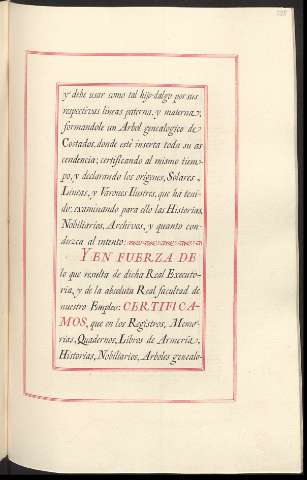 y debe usar como tal hijo-dalgo por sus
respectivas lineas paterna, y materna,
formandole un Arbol genealogico de
Costados, donde esté inserta toda su as
cendencia; certificando al mismo tiem-
po, y declarando los origenes, Solares,
Lineas, y Varones Ilustres, que ha teni-
do; examinando para ello las Historias,
Nobiliarios, Archivos, y quanto con-
duzca al intento:
Y EN FUERZA DE
lo que resulta de dicha Real Executo-
ria, y de la absoluta Real facultad de
nuestro Empleo: CERTIFICA-
MOS, que en los Registros, Memo-
rias, Quadernos, Libros de Armeria,
Historias, Nobiliarios, Arboles genealo-